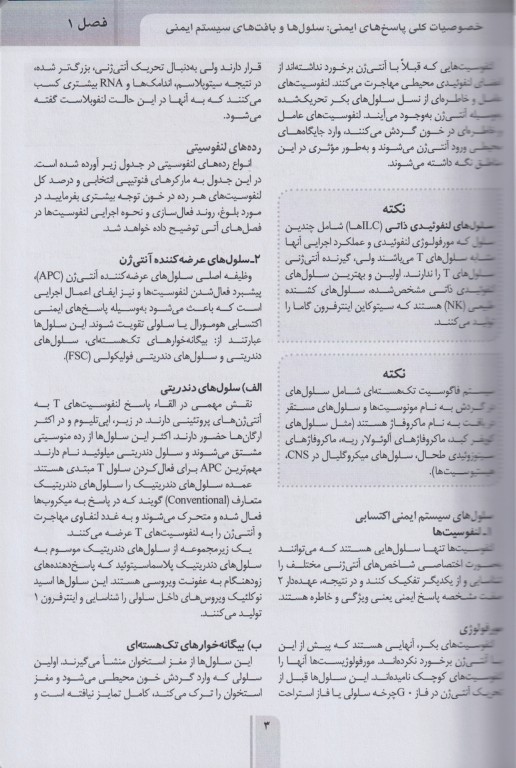 فصل ۱
خصوصیات کلی پاسخ‌های ایمنی: سلول‌ها و بافت‌های سیستم ایمنی
لنفوسیت‌هایی که قبلاً با آنتی‌ژن برخورد نداشته‌اند از
لنفوئیدی محیطی مهاجرت می‌کنند. لنفوسیت‌های
و خاطره‌ای از نسل سلول‌های بکر تحریک‌شده
آنتی‌ژن به‌وجود می‌آیند. لنفوسیت‌های عامل
و خاطره‌ای در خون گردش می‌کنند، وارد جایگاه‌های
ورود آنتی‌ژن می‌شوند و به‌طور مؤثری در این
نگه داشته می‌شوند.
نکته
سلول‌های لنفوئیدی ذاتی (ILCها) شامل چندین
که مورفولوژی لنفوئیدی و عملکرد اجرایی آنها
سلول‌های T می‌باشند ولی، گیرنده آنتی‌ژنی
T را ندارند. اولین و بهترین سلول‌های
لنفوئیدی ذاتی مشخص‌شده، سلول‌های کشنده
طبیعی (NK) هستند که سیتوکاین اینترفرون گاما را
تولید می‌کنند.
نکته
سیستم فاگوسیت تک‌هسته‌ای شامل سلول‌های
در گردش به نام مونوسیت‌ها و سلول‌های مستقر
در بافت به نام ماکروفاژ هستند (مثل سلول‌های
کوپفر کبد، ماکروفاژهای آلوئولار ریه، ماکروفاژهای
سینوزوئیدی طحال، سلول‌های میکروگلیال در CNS،
هیستیوسیت‌ها).
سلول‌های سیستم ایمنی اکتسابی
۱ـ لنفوسیت‌ها
لنفوسیت‌ها تنها سلول‌هایی هستند که می‌توانند
به‌صورت اختصاصی شاخص‌های آنتی‌ژنی مختلف را
شناسایی و از یکدیگر تفکیک کنند و در نتیجه، عهده‌دار ۲
صفت مشخصه پاسخ ایمنی یعنی ویژگی و خاطره هستند.
مورفولوژی
لنفوسیت‌های بکر، آنهایی هستند که پیش از این
با آنتی‌ژن برخورد نکرده‌اند. مورفولوژیست‌ها آنها را
لنفوسیت‌های کوچک نامیده‌اند. این سلول‌ها قبل از
تحریک آنتی‌ژن در فاز G۰ چرخه سلولی یا فاز استراحت
قرار دارند ولی به‌دنبال تحریک آنتی‌ژنی، بزرگ‌تر شده،
در نتیجه سیتوپلاسم، اندامک‌ها و RNA بیشتری کسب
می‌کنند که به آنها در این حالت لنفوبلاست گفته
می‌شود.
رده‌های لنفوسیتی
انواع رده‌های لنفوسیتی در جدول زیر آورده شده است.
در این جدول به مارکرهای فنوتیپی انتخابی و درصد کل
لنفوسیت‌های هر رده در خون توجه بیشتری بفرمایید. در
مورد بلوغ، روند فعال‌سازی و نحوه اجرایی لنفوسیت‌ها در
فصل‌های آتی توضیح داده خواهد شد.
۲ـ سلول‌های عرضه‌کننده آنتی‌ژن
وظیفه اصلی سلول‌های عرضه‌کننده آنتی‌ژن (APC)،
پیشبرد فعال‌شدن لنفوسیت‌ها و نیز ایفای اعمال اجرایی
است که باعث می‌شود به‌وسیله پاسخ‌های ایمنی
اکتسابی هومورال یا سلولی تقویت شوند. این سلول‌ها
عبارتند از: بیگانه‌خوارهای تک‌هسته‌ای، سلول‌های
دندریتی و سلول‌های دندریتی فولیکولی (FSC).
الف) سلول‌های دندریتی
نقش مهمی در القاء پاسخ لنفوسیت‌های T به
آنتی‌ژن‌های پروتئینی دارند. در زیر، اپی‌تلیوم و در اکثر
ارگان‌ها حضور دارند. اکثر این سلول‌ها از رده منوسیتی
مشتق می‌شوند و سلول دندریتی میلوئید نام دارند.
مهم‌ترین APC برای فعال‌کردن سلول T مبتدی هستند.
عمده سلول‌های دندریتیک را سلول‌های دندریتیک
متعارف (Conventional) گویند که در پاسخ به میکروب‌ها
فعال شده و متحرک می‌شوند و به غدد لنفاوی مهاجرت
و آنتی‌ژن را به لنفوسیت‌های T عرضه می‌کنند.
یک زیرمجموعه از سلول‌های دندریتیک موسوم به
سلول‌های دندریتیک پلاسماسیتوئید که پاسخ‌دهنده‌های
زودهنگام به عفونت ویروسی هستند. این سلول‌ها اسید
نوکلئیک ویروس‌های داخل سلولی را شناسایی و اینترفرون ۱
تولید می‌کنند.
ب) بیگانه‌خوارهای تک‌هسته‌ای
این سلول‌ها از مغز استخوان منشأ می‌گیرند. اولین
سلولی که وارد گردش خون محیطی می‌شود و مغز
استخوان را ترک می‌کند، کامل تمایز نیافته است و
۳